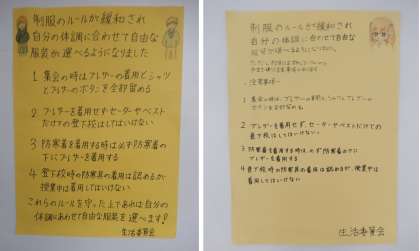 制服のルールが緩和され
自分の体調に合わせて自由な
服装が選べるようになりました
1 集会の時はブレザーの着用とシャツ
とブレザーのボタンを全部留める
2 ブレザーを着用せずセーターやベスト
だけでの登下校はしてはいけない
3 防寒着を着用する時は必ず防寒着の
下にブレザーを着用する
4 登下校時の防寒具の着用は認めるが、
授業中は着用してはいけない
これらのルールを守った上であれば自分の
体調にあわせて自由な服装を選べます!
生活委員会
制服のルールが緩和され
自分の体調に合わせて自由な
服装が選べるようになりました。
注意事項
1 集会の時は、ブレザーの着用とシャツとブレザーの
ボタンを全部留める。
2 ブレザーを着用せず、セーターやベストだけでの
登下校はしてはいけない
3 防寒着を着用する時は、必ず防寒着の下に
ブレザーを着用する
4 登下校時の防寒具の着用は認めるが、授業中は
着用してはいけない
生活委員会